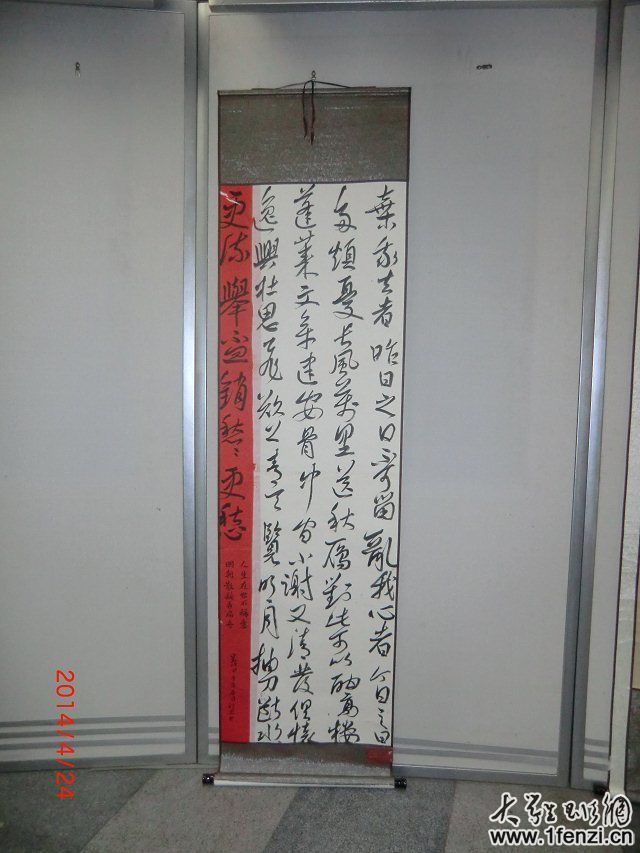 棄我去者昨日之日不可留亂我心者今日之日
多煩憂長風萬里送秋雁對此可以酣高樓
蓬萊文章建安骨中間小謝又清發俱懷
逸興壯思飛欲上青天覽明月抽刀斷水
更流舉盃銷愁〻更愁
人生在世不稱意
明朝散髮弄扁舟
2014/4/24
www.1fenzi.cn